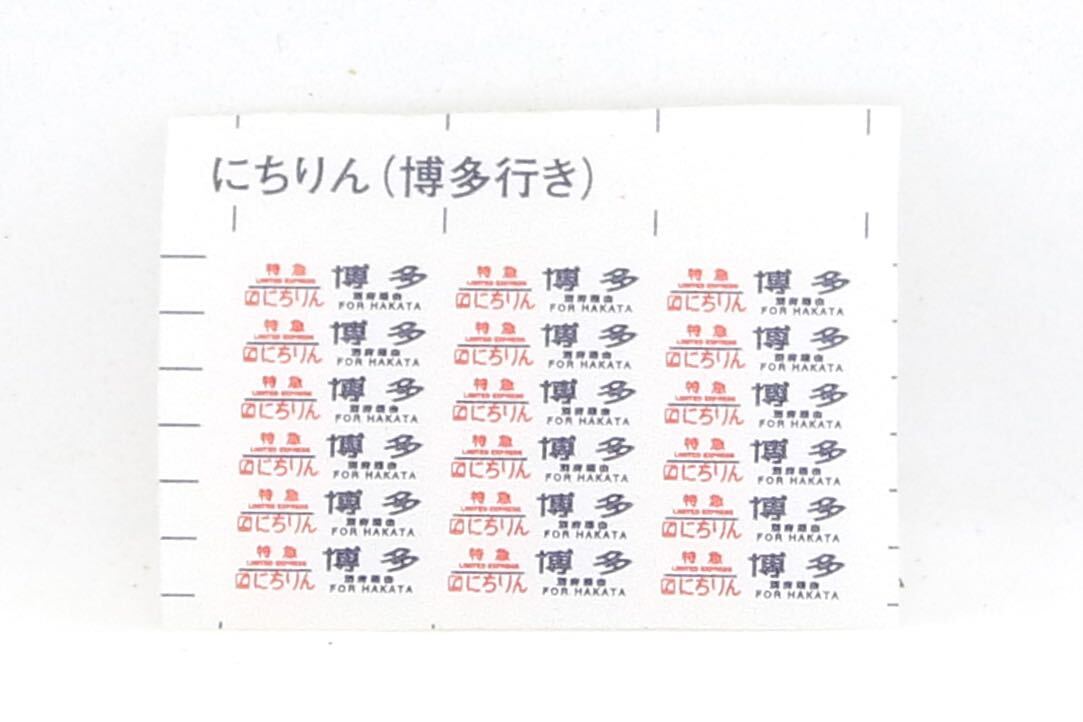 にちりん(博多行き)
特急 博多 特急 博多 特急 博多
LIMITED EXPRESS LIMITED EXPRESS LIMITED EXPRESS
にちりん 別府経由 にちりん 別府経由 にちりん 別府経由
FOR HAKATA FOR HAKATA FOR HAKATA
特急 博多 特急 博多 特急 博多
LIMITED EXPRESS LIMITED EXPRESS LIMITED EXPRESS
にちりん 別府経由 にちりん 別府経由 にちりん 別府経由
FOR HAKATA FOR HAKATA FOR HAKATA
特急 博多 特急 博多 特急 博多
LIMITED EXPRESS LIMITED EXPRESS LIMITED EXPRESS
にちりん 別府経由 にちりん 別府経由 にちりん 別府経由
FOR HAKATA FOR HAKATA FOR HAKATA
特急 博多 特急 博多 特急 博多
LIMITED EXPRESS LIMITED EXPRESS LIMITED EXPRESS
にちりん 別府経由 にちりん 別府経由 にちりん 別府経由
FOR HAKATA FOR HAKATA FOR HAKATA
特急 博多 特急 博多 特急 博多
LIMITED EXPRESS LIMITED EXPRESS LIMITED EXPRESS
にちりん 別府経由 にちりん 別府経由 にちりん 別府経由
FOR HAKATA FOR HAKATA FOR HAKATA
特急 博多 特急 博多 特急 博多
LIMITED EXPRESS LIMITED EXPRESS LIMITED EXPRESS
にちりん 別府経由 にちりん 別府経由 にちりん 別府経由
FOR HAKATA FOR HAKATA FOR HAKATA